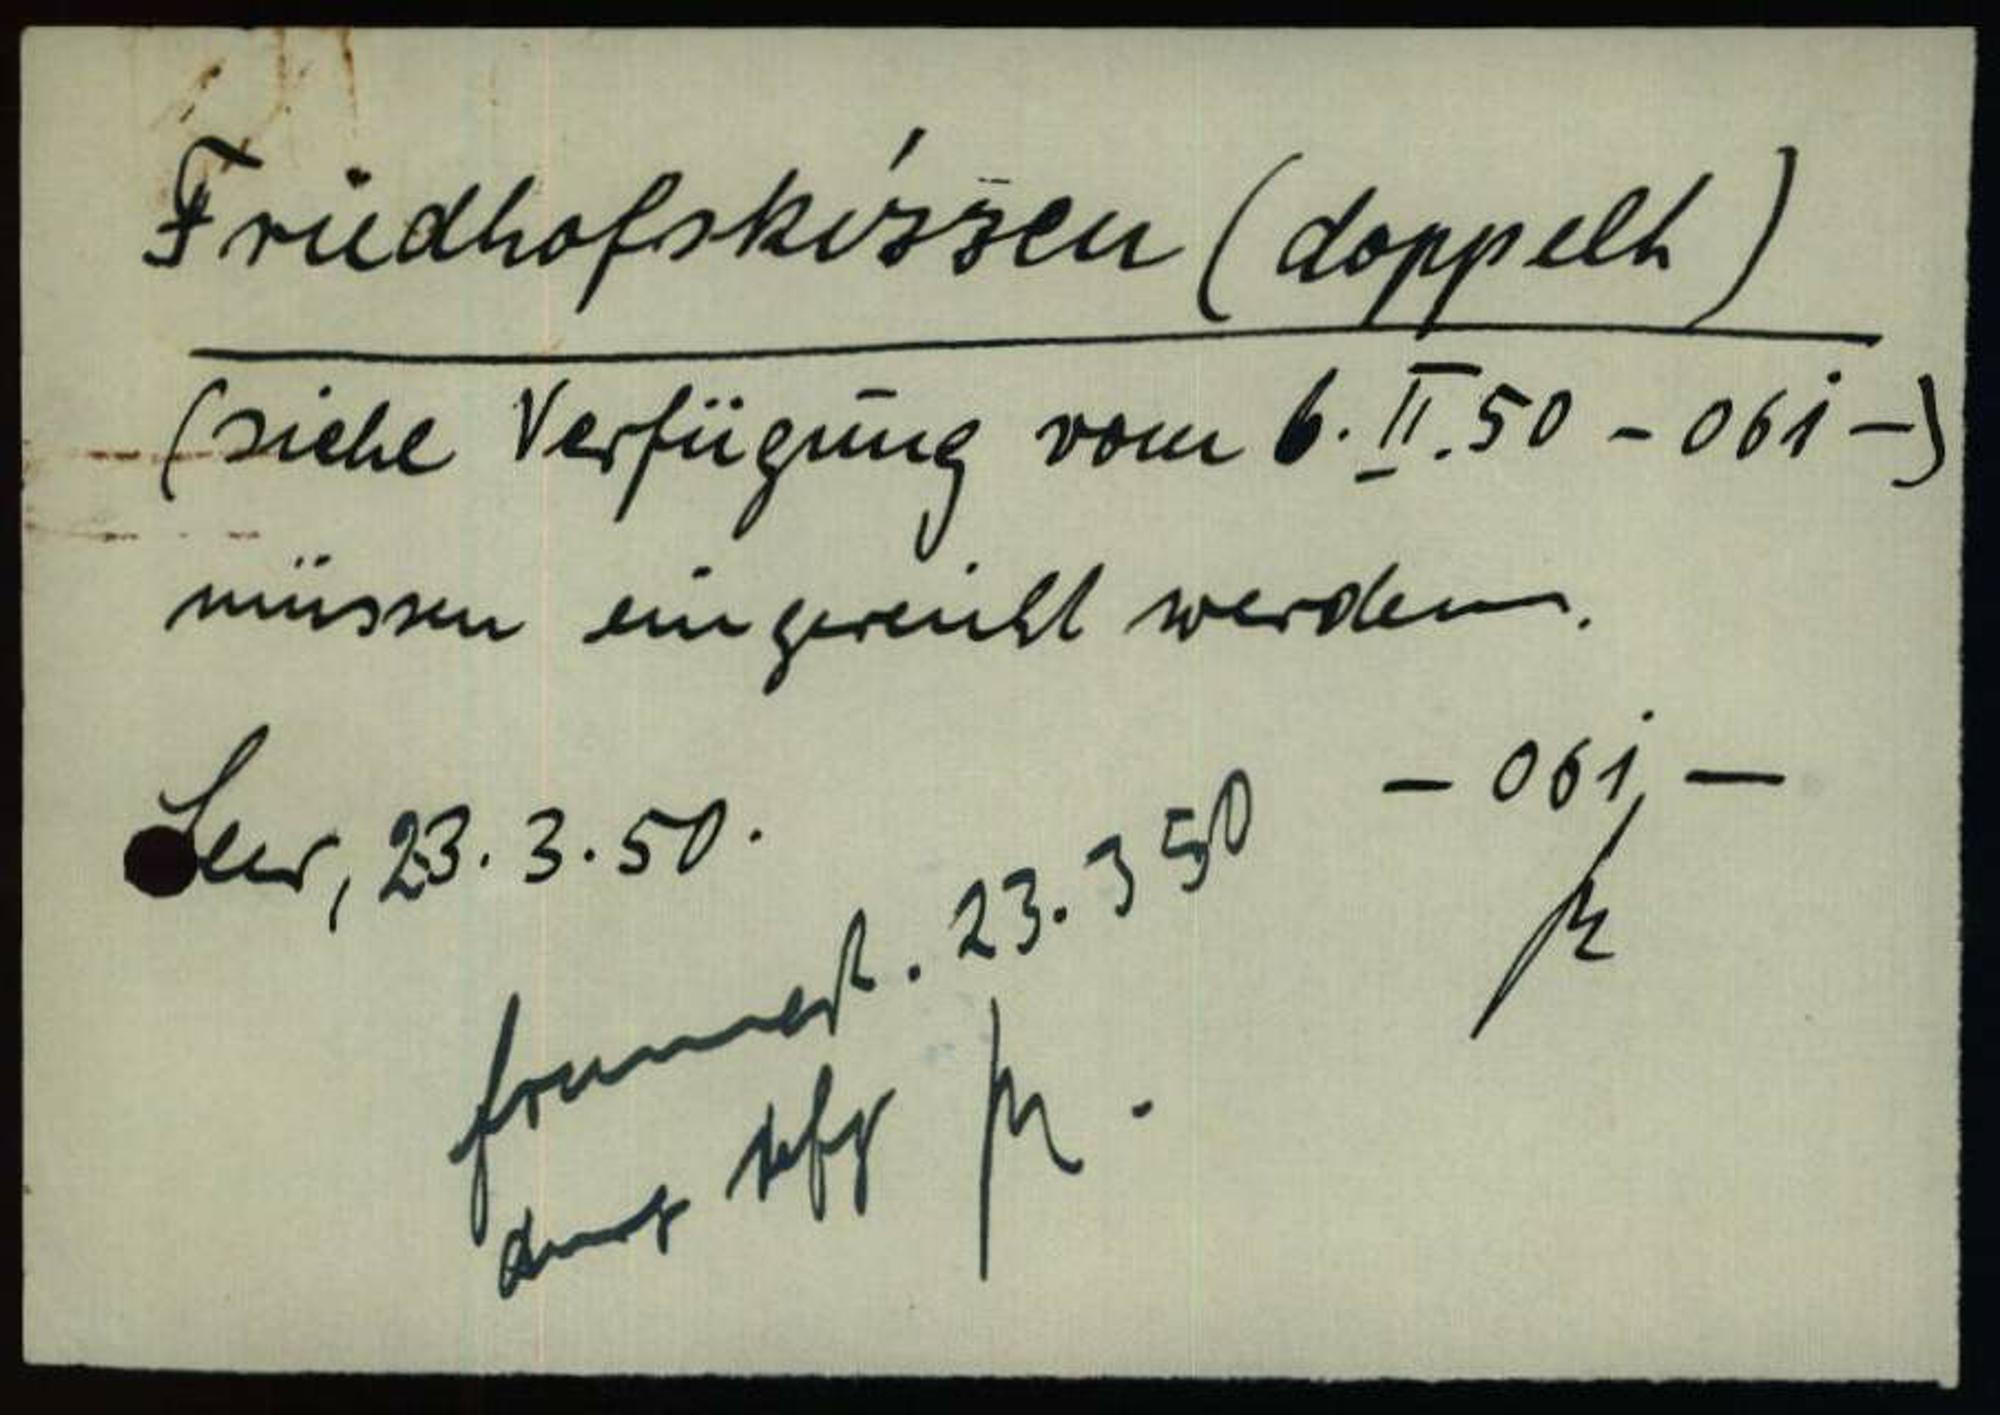 Friedhofskissen (doppelt)
(siehe Verfügung vom 6. II. 50 - 061 -)
müssen eingereicht werden.
- 061 -
Leer, 23. 3. 50.
23. 3 50
durch